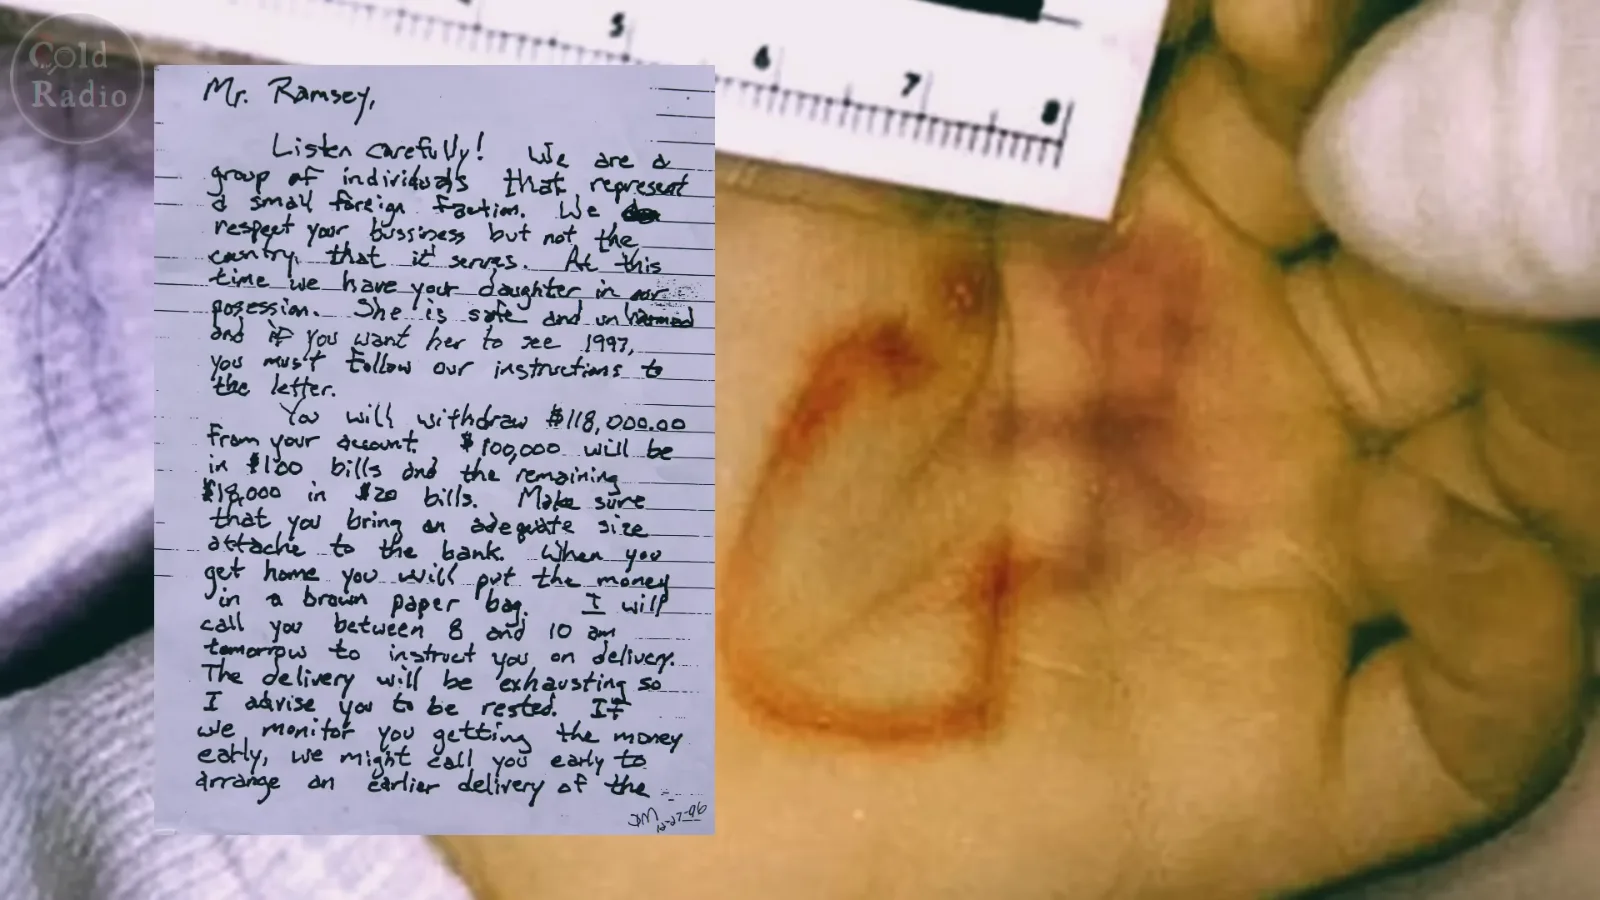 Cold
Radio
5
6
7
8
Mr. Ramsey,
Listen carefully! We are a
group of individuals that represent
a small foreign faction. We
respect your bussiness but not the
country that it serves. At this
time we have your daughter in our
posession. She is safe and unharmed
and if you want her to see 1997,
you must follow our instructions to
the letter.
You will withdraw $118,000.00
from your account. $100,000 will be
in $100 bills and the remaining
$18,000 in $20 bills. Make sure
that you bring an adequate size
attache to the bank. When you
get home you will put the money
in a brown paper bag. I will
call you between 8 and 10 am
tomorrow to instruct you on delivery.
The delivery will be exhausting so
I advise you to be rested. If
we monitor you getting the money
early, we might call you early to
arrange an earlier delivery of the
12-27-96